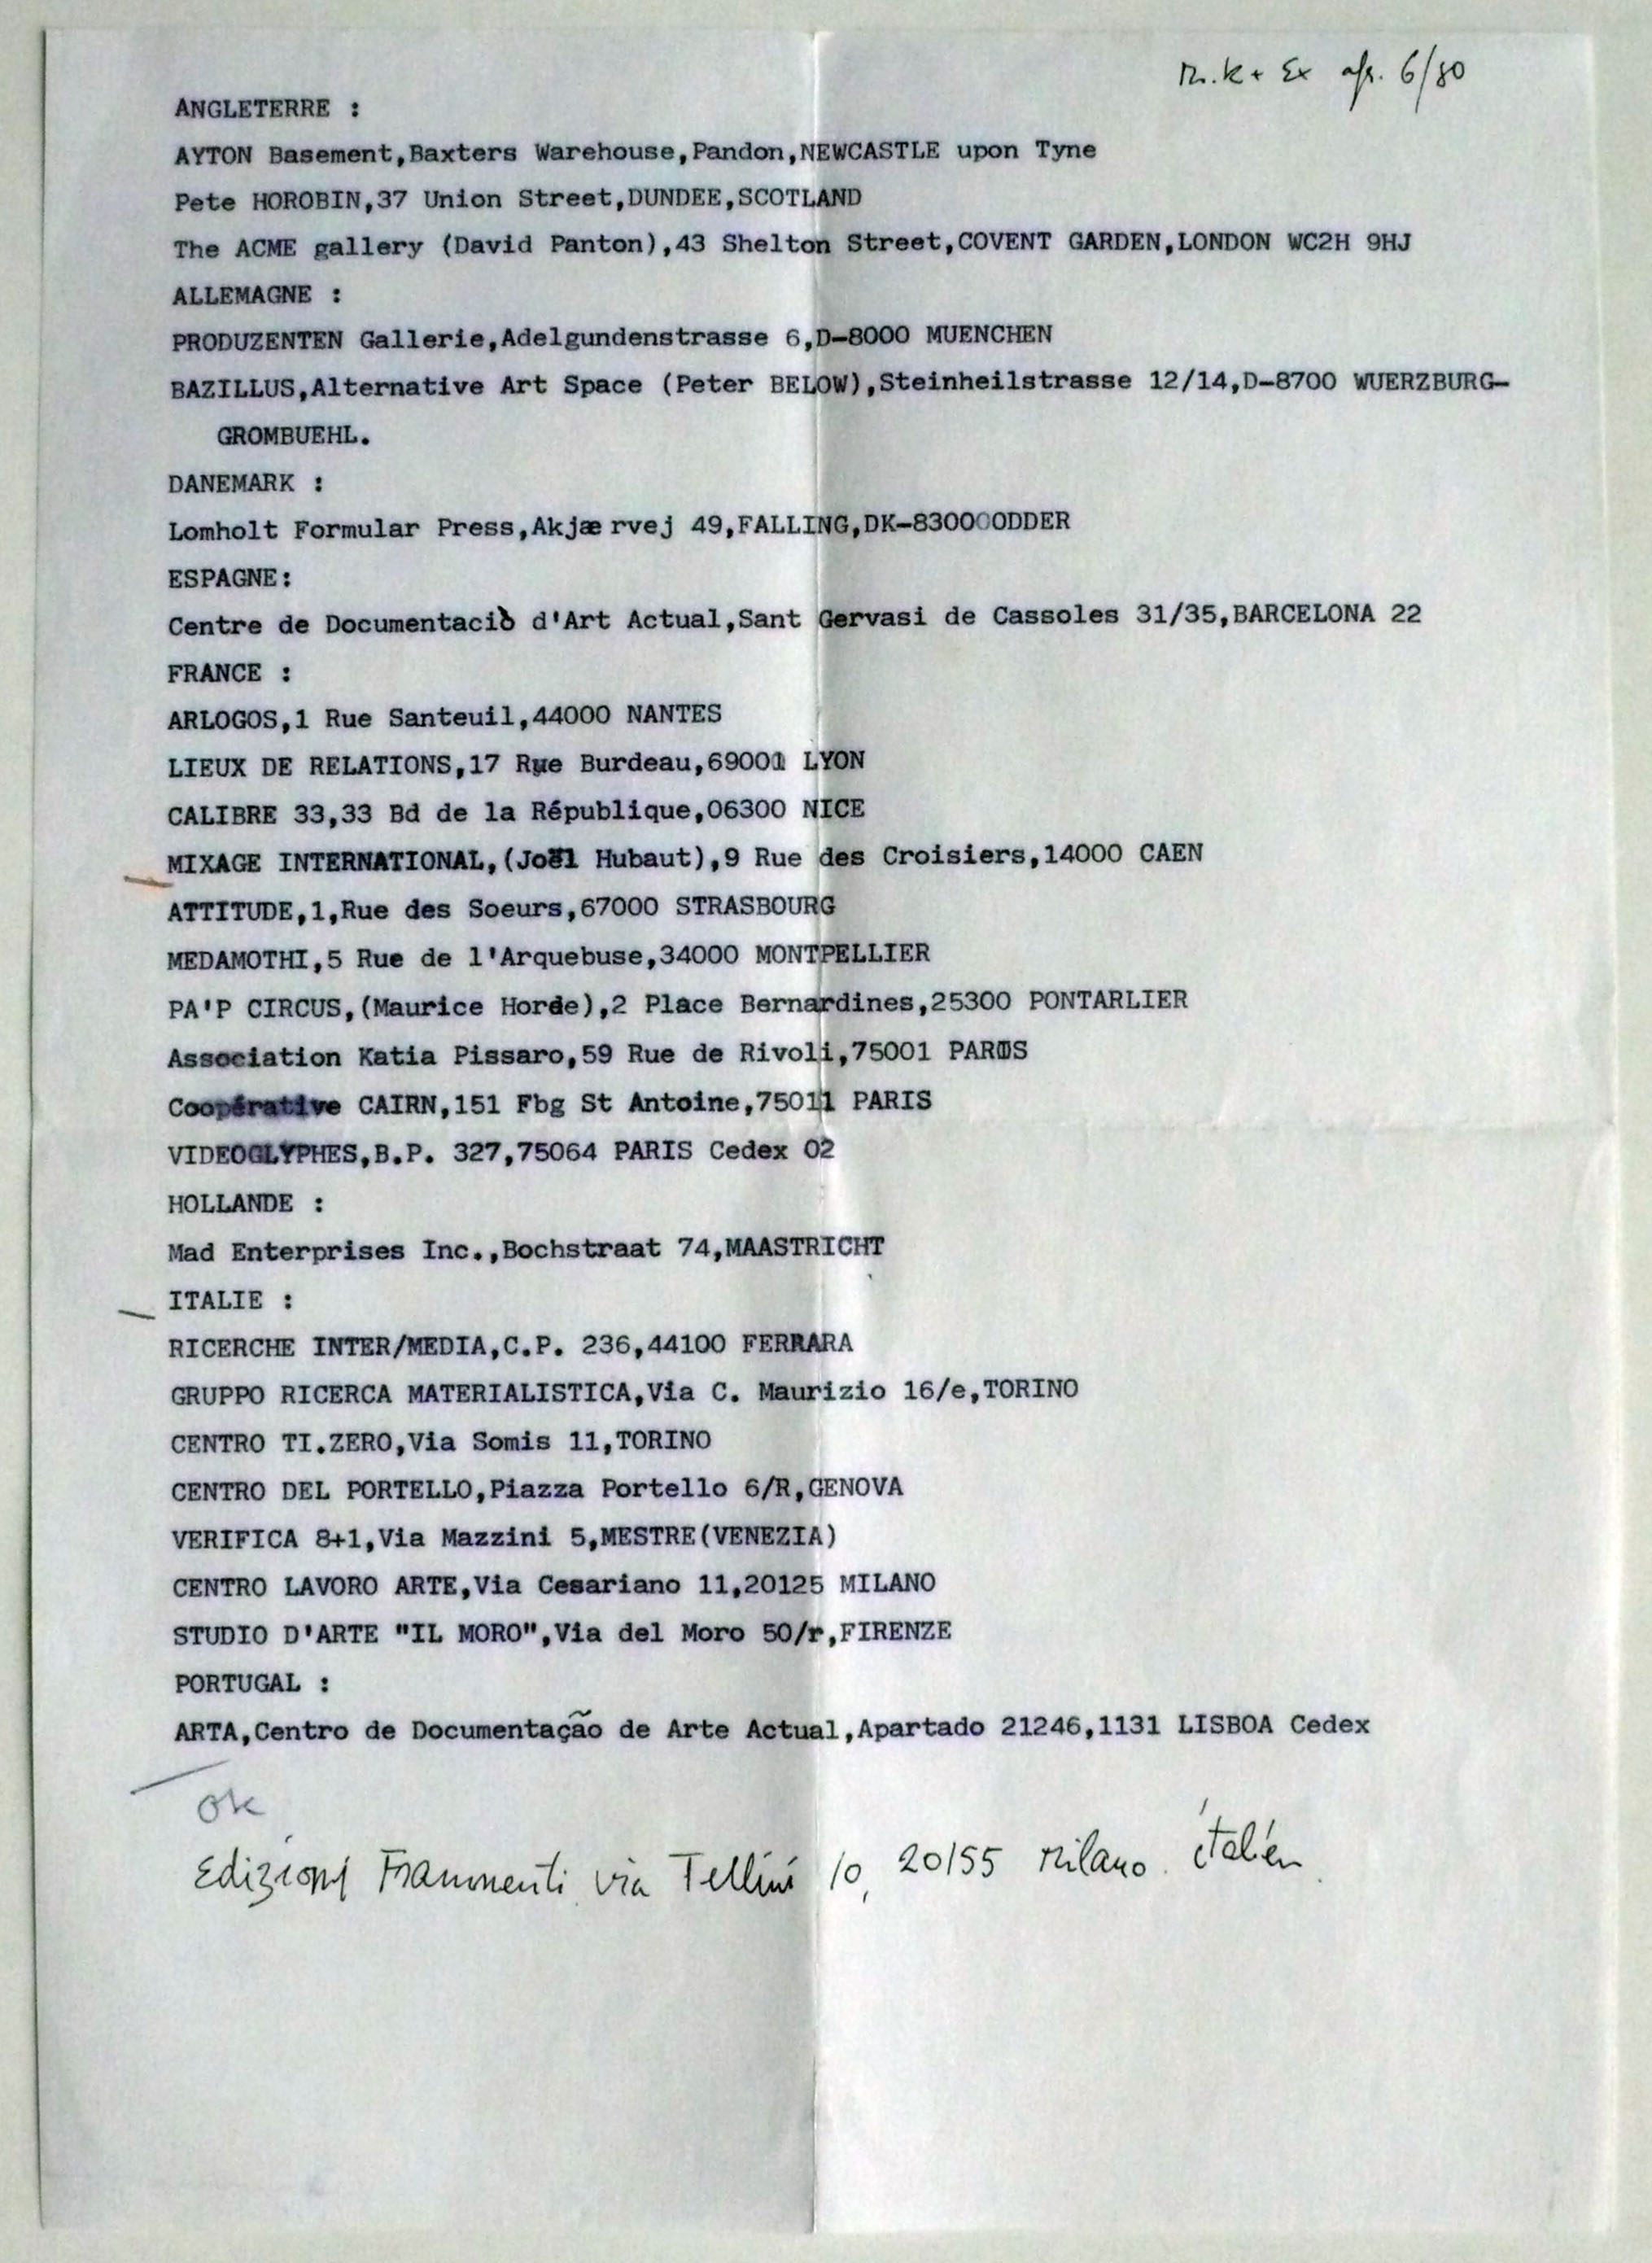 K + Ex afs. 6/80
ANGLETERRE :
AYTON Basement,Baxters Warehouse,Pandon,NEWCASTLE upon Tyne
Pete HOROBIN,37 Union Street,DUNDEE,SCOTLAND
The ACME gallery (David Panton),43 Shelton Street,COVENT GARDEN,LONDON WC2H 9HJ
ALLEMAGNE :
PRODUZENTEN Gallerie,Adelgundenstrasse 6,D-8000 MUENCHEN
BAZILLUS,Alternative Art Space (Peter BELOW),Steinheilstrasse 12/14,D-8700 WUERZBURG-
GROMBUEHL.
DANEMARK :
Lomholt Formular Press,Akjæ rvej 49,FALLING,DK-8300 ODDER
ESPAGNE:
Centre de Documentaciò d'Art Actual,Sant Gervasi de Cassoles 31/35,BARCELONA 22
FRANCE :
ARLOGOS,1 Rue Santeuil,44000 NANTES
LIEUX DE RELATIONS,17 Rue Burdeau,69001 LYON
CALIBRE 33,33 Bd de la République,06300 NICE
MIXAGE INTERNATIONAL,(Joël Hubaut),9 Rue des Croisiers,14000 CAEN
ATTITUDE,1,Rue des Soeurs,67000 STRASBOURG
MEDAMOTHI,5 Rue de l'Arquebuse,34000 MONTPELLIER
PA'P CIRCUS,(Maurice Horde),2 Place Bernardines,25300 PONTARLIER
Association Katia Pissaro,59 Rue de Rivoli,75001 PARIS
Coopérative CAIRN,151 Fbg St Antoine,75011 PARIS
VIDEOGLYPHES,B.P. 327,75064 PARIS Cedex 02
HOLLANDE :
Mad Enterprises Inc.,Bochstraat 74,MAASTRICHT
ITALIE :
RICERCHE INTER/MEDIA,C.P. 236,44100 FERRARA
GRUPPO RICERCA MATERIALISTICA,Via C. Maurizio 16/e,TORINO
CENTRO TI.ZERO,Via Somis 11,TORINO
CENTRO DEL PORTELLO,Piazza Portello 6/R,GENOVA
VERIFICA 8+1,Via Mazzini 5,MESTRE(VENEZIA)
CENTRO LAVORO ARTE,Via Cesariano 11,20125 MILANO
STUDIO D'ARTE "IL MORO",Via del Moro 50/r,FIRENZE
PORTUGAL :
ARTA,Centro de Documentação de Arte Actual,Apartado 21246,1131 LISBOA Cedex
OK
Edizioni Frammenti via Tellini 10, 20155 Milano. italien.